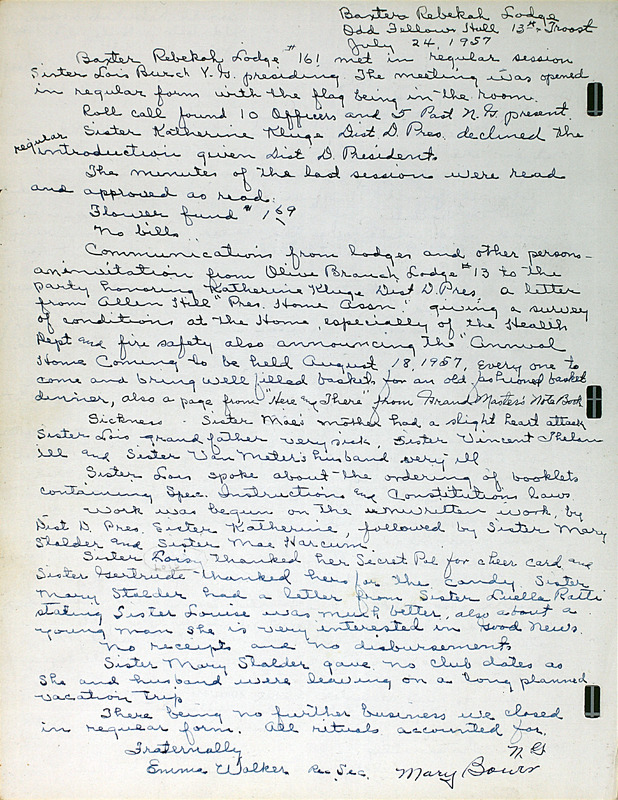 Baxters Rebekah Lodge
Odd Fellows Hall 13th & Troost
July 24, 1957
Baxter Rebekah Lodge #161 met in regular session
Sister Lois Burch V.G. presiding. The meeting was opened
in regular form with the flag being in the room.
Roll call found 10 Officers and 5 Past N.G. present.
Sister Katherine Kluge Dist D. Pres. declined the
regular introduction given Dist D. Presidents
The minutes of the last session were read
and approved as read.
Flower fund $1.69
No bills
Communications from lodges and other persons -
an invitation from Olive Branch Lodge #13 to the
party honoring Katherine Kluge Dist D. Pres. a letter
from Allen Hill "Pres. Home Assn." giving a survey
of conditions at the Home, especially of the Health
Dept and fire safety also announcing the "Annual
Home Coming to be held August 18, 1957, Every one to
come and bring well filled baskets for an old fashioned basket
dinner, also a page from "Here & There" from Grand Master's Note Book
Sickness - Sister Maes mother had a slight heart attack
Sister Lois grand father very sick. Sister Vincent
ill and Sister Van Meter's husband very ill
Sister Lois spoke about the ordering of booklets
containing Spec. Instructions and Constitutions laws
Work was begun on the unwritten work, by
Dist D. Pres. Sister Katherine, followed by Sister Mary
Stalder and Sister Mae Harcum.
Sister Daisy thanked her Secret Pal for cheer card and
Sister Gertrude thanked hers for the candy. Sister
Mary Stalder had a letter from Sister Luella
stating Sister Louise was much better, also about a
young man she is very interested in Good News.
No receipts and no disbursements
Sister Mary Stalder gave no club dates as
she and husband were leaving on a long planned
vacation trip
There being no further business we closed
in regular form. All rituals accounted for.
Fraternally N.G.
Emma Walker Rec. Sec. Mary Bours